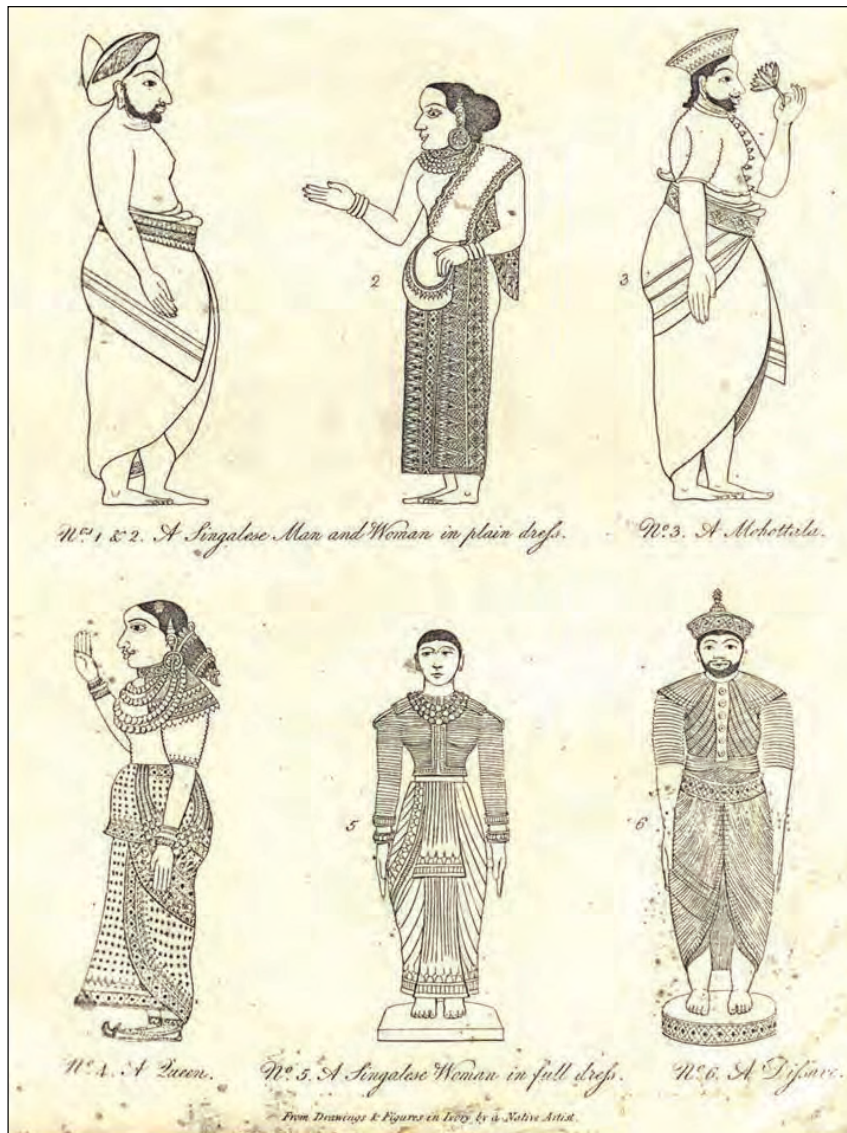 2
3
Nos. 1 & 2. A Singalese Man and Woman in plain dreſs.
No. 3. A Mohottala.
5
6
No. 4. A Queen.
No. 5. A Singalese Woman in full dreſs.
No. 6. A Diſsave.
From Drawings & Figures in Ivory by a Native Artist.